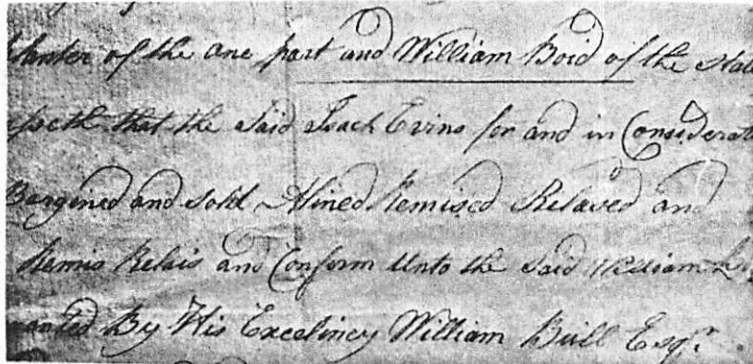 Planter of the one part and William Boid of the Stat
sseth that the Said Isack Evins for and in Considerat
Bargined and sold Alined Remised Relased and
Remis Relais and Conform Unto the Said William
ranted By His Excelincy William Bull Esqr.